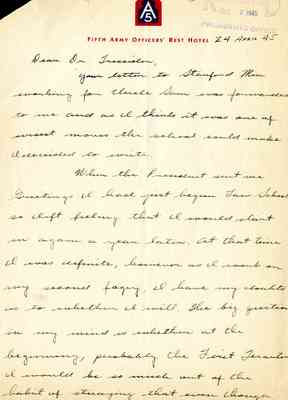 A
5
FIFTH ARMY OFFICERS' REST HOTEL
24 April 45
PRESIDENT'S OFFICE
Dear Dr. Tresidder,
Your letter to Stanford Men
working for Uncle Sam was forwarded
to me and as I think it was one of
moves the school could make
I decided to write.
When the President sent me
Greetings I had just begun Law School
so left feeling that I would start
in again a year later. At that time
I was definite, however as I work on
my second I have my doubts
as to whether I will. The big question
in my mind is whether at the
beginning, probably the First
I would be so much out of the
habit of studying that even though